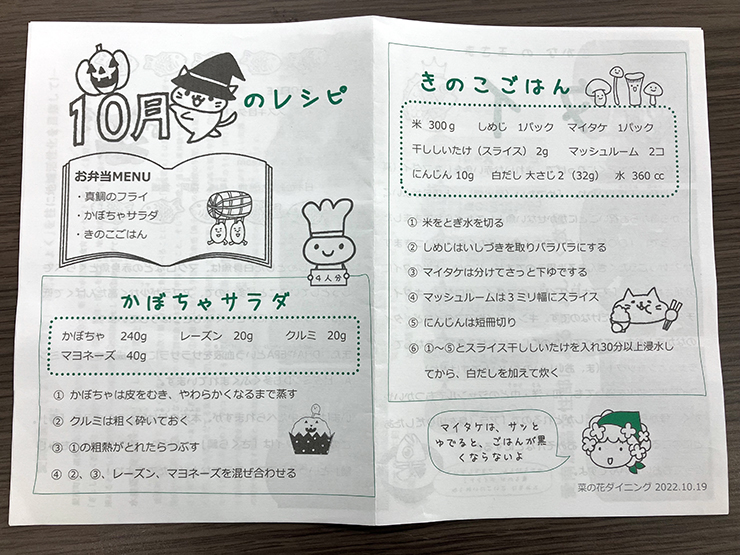 10月のレシピ
お弁当MENU
・真鯛のフライ
・かぼちゃサラダ
・きのこごはん
4人分
かぼちゃサラダ
かぼちゃ 240g レーズン 20g クルミ 20g
マヨネーズ 40g
① かぼちゃは皮をむき、やわらかくなるまで蒸す
② クルミは粗く砕いておく
③ ①の粗熱がとれたらつぶす
④ ②、③、レーズン、マヨネーズを混ぜ合わせる
きのこごはん
米 300g しめじ 1パック マイタケ 1パック
干ししいたけ（スライス）2g マッシュルーム 2コ
にんじん 10g 白だし 大さじ2（32g） 水 360cc
① 米をとぎ水を切る
② しめじはいしづきを取りバラバラにする
③ マイタケは分けてさっと下ゆでする
④ マッシュルームは3ミリ幅にスライス
⑤ にんじんは短冊切り
⑥ ①～⑤とスライス干ししいたけを入れ30分以上浸水し
てから、白だしを加えて炊く
マイタケは、サッと
ゆでると、ごはんが黒
くならないよ
菜の花ダイニング 2022.10.19